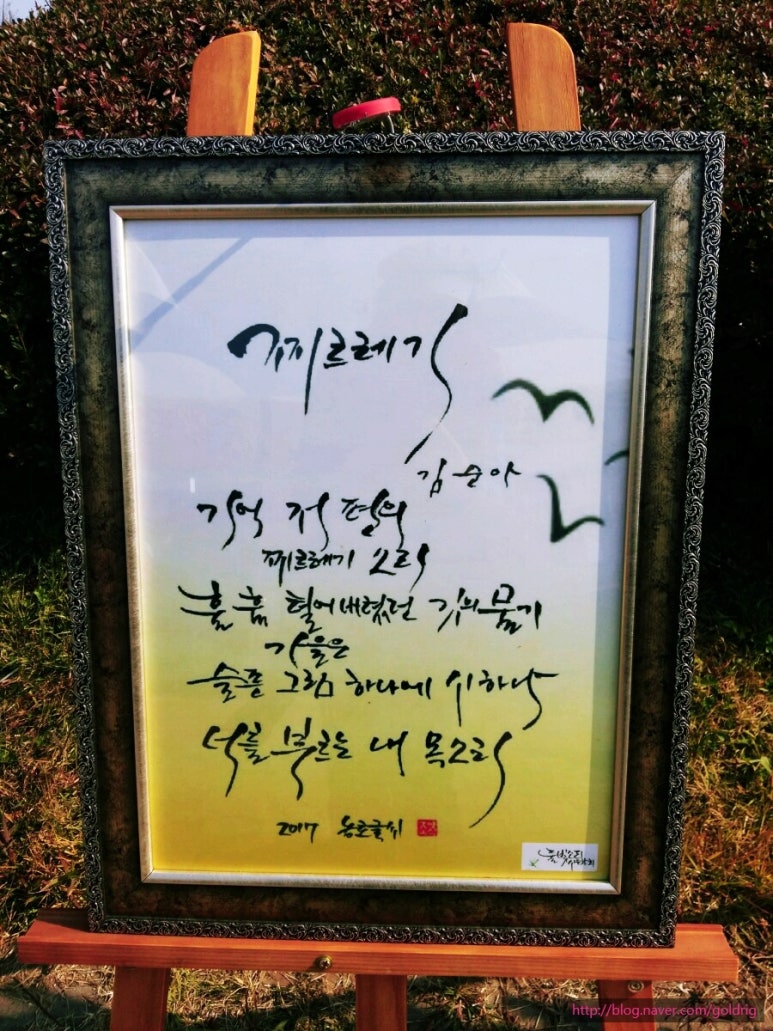 찌르레기
김순아
기억 저 편의
찌르레기 소리
훌훌 털어내렸던 깃의 물기
가을은
슬픈 그림 하나에 시 하나
너를 부르는 내 목소리
2017
http://blog.naver.com/goldrig